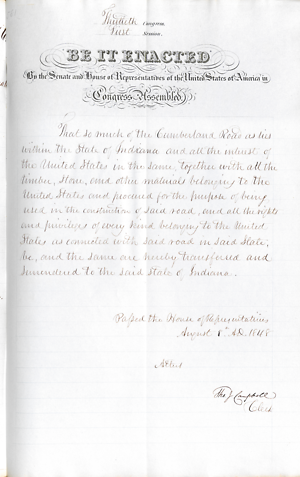 Thirtieth Congress
First Session,
BE IT ENACTED
By the Senate and House of Representatives of the United States of America in
Congress Assembled
That so much of the Cumberland Road as lies
within the State of Indiana and all the interest of
the United States in the same, together with all the
timber, stone, and other materials belonging to the
United States and procured for the purpose of being
used in the construction of said road, and all the rights
and privileges of every kind belonging to the United
States as connected with said road in said State,
be, and the same are hereby transferred and
surrendered to the said State of Indiana.
Passed the House of Representatives
August AD. 1848
Attest
Tho J Campbell
Clerk